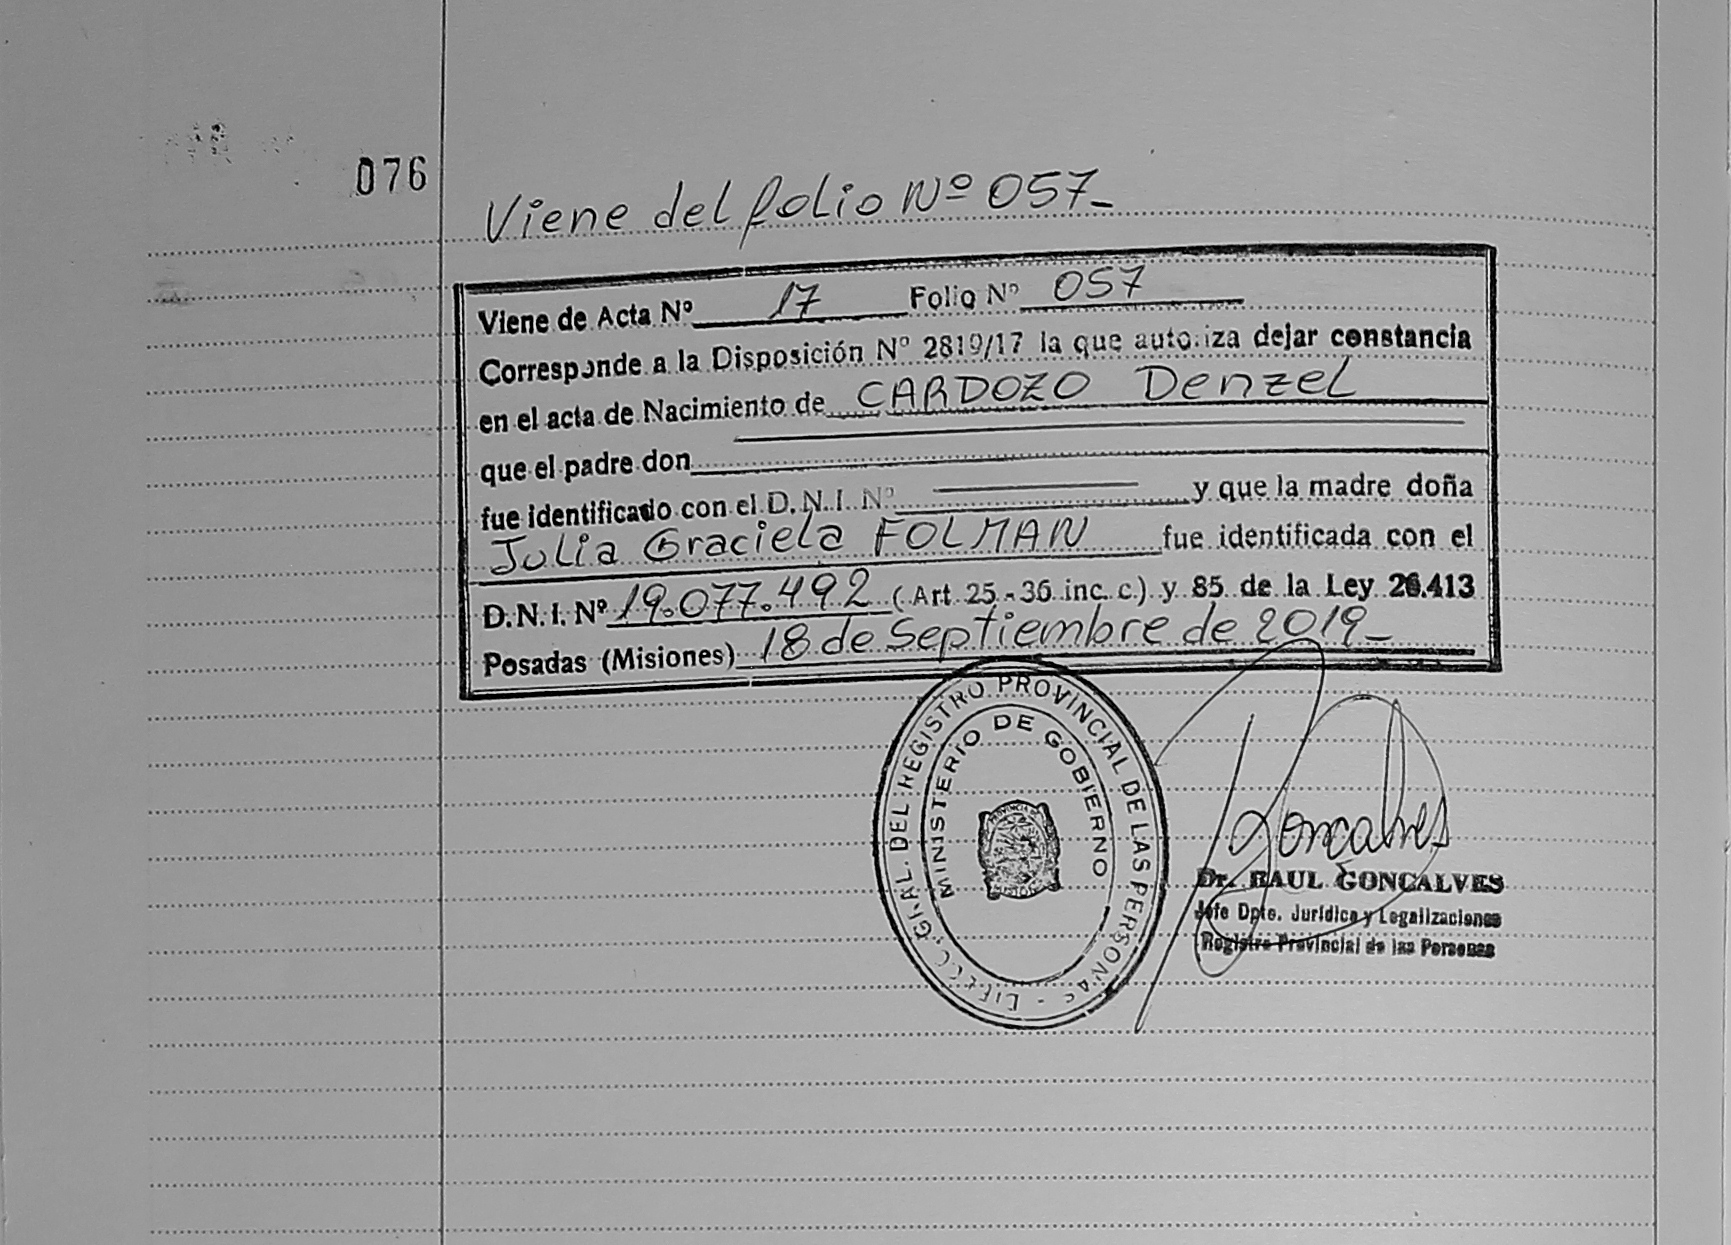 076
Viene del folio Nº 057-
Viene de Acta Nº 17 Folio Nº 057
Corresponde a la Disposición Nº 2819/17 la que autoriza dejar constancia
en el acta de Nacimiento de CARDOZO Denzel
que el padre don
fue identificado con el D.N.I. Nº y que la madre doña
Julia Graciela FOLMAN fue identificada con el
D.N.I. Nº 19.077.492 (Art 25-36 inc. c) y 85 de la Ley 26.413
Posadas (Misiones) 18 de Septiembre de 2019-
GRAL. DEL REGISTRO PROVINCIAL DE LAS PERSONAS
MINISTERIO DE GOBIERNO
Goncalves
Dr. RAUL GONCALVES
Jefe Dpto. Jurídico y Legalizaciones
Registro Provincial de las Personas